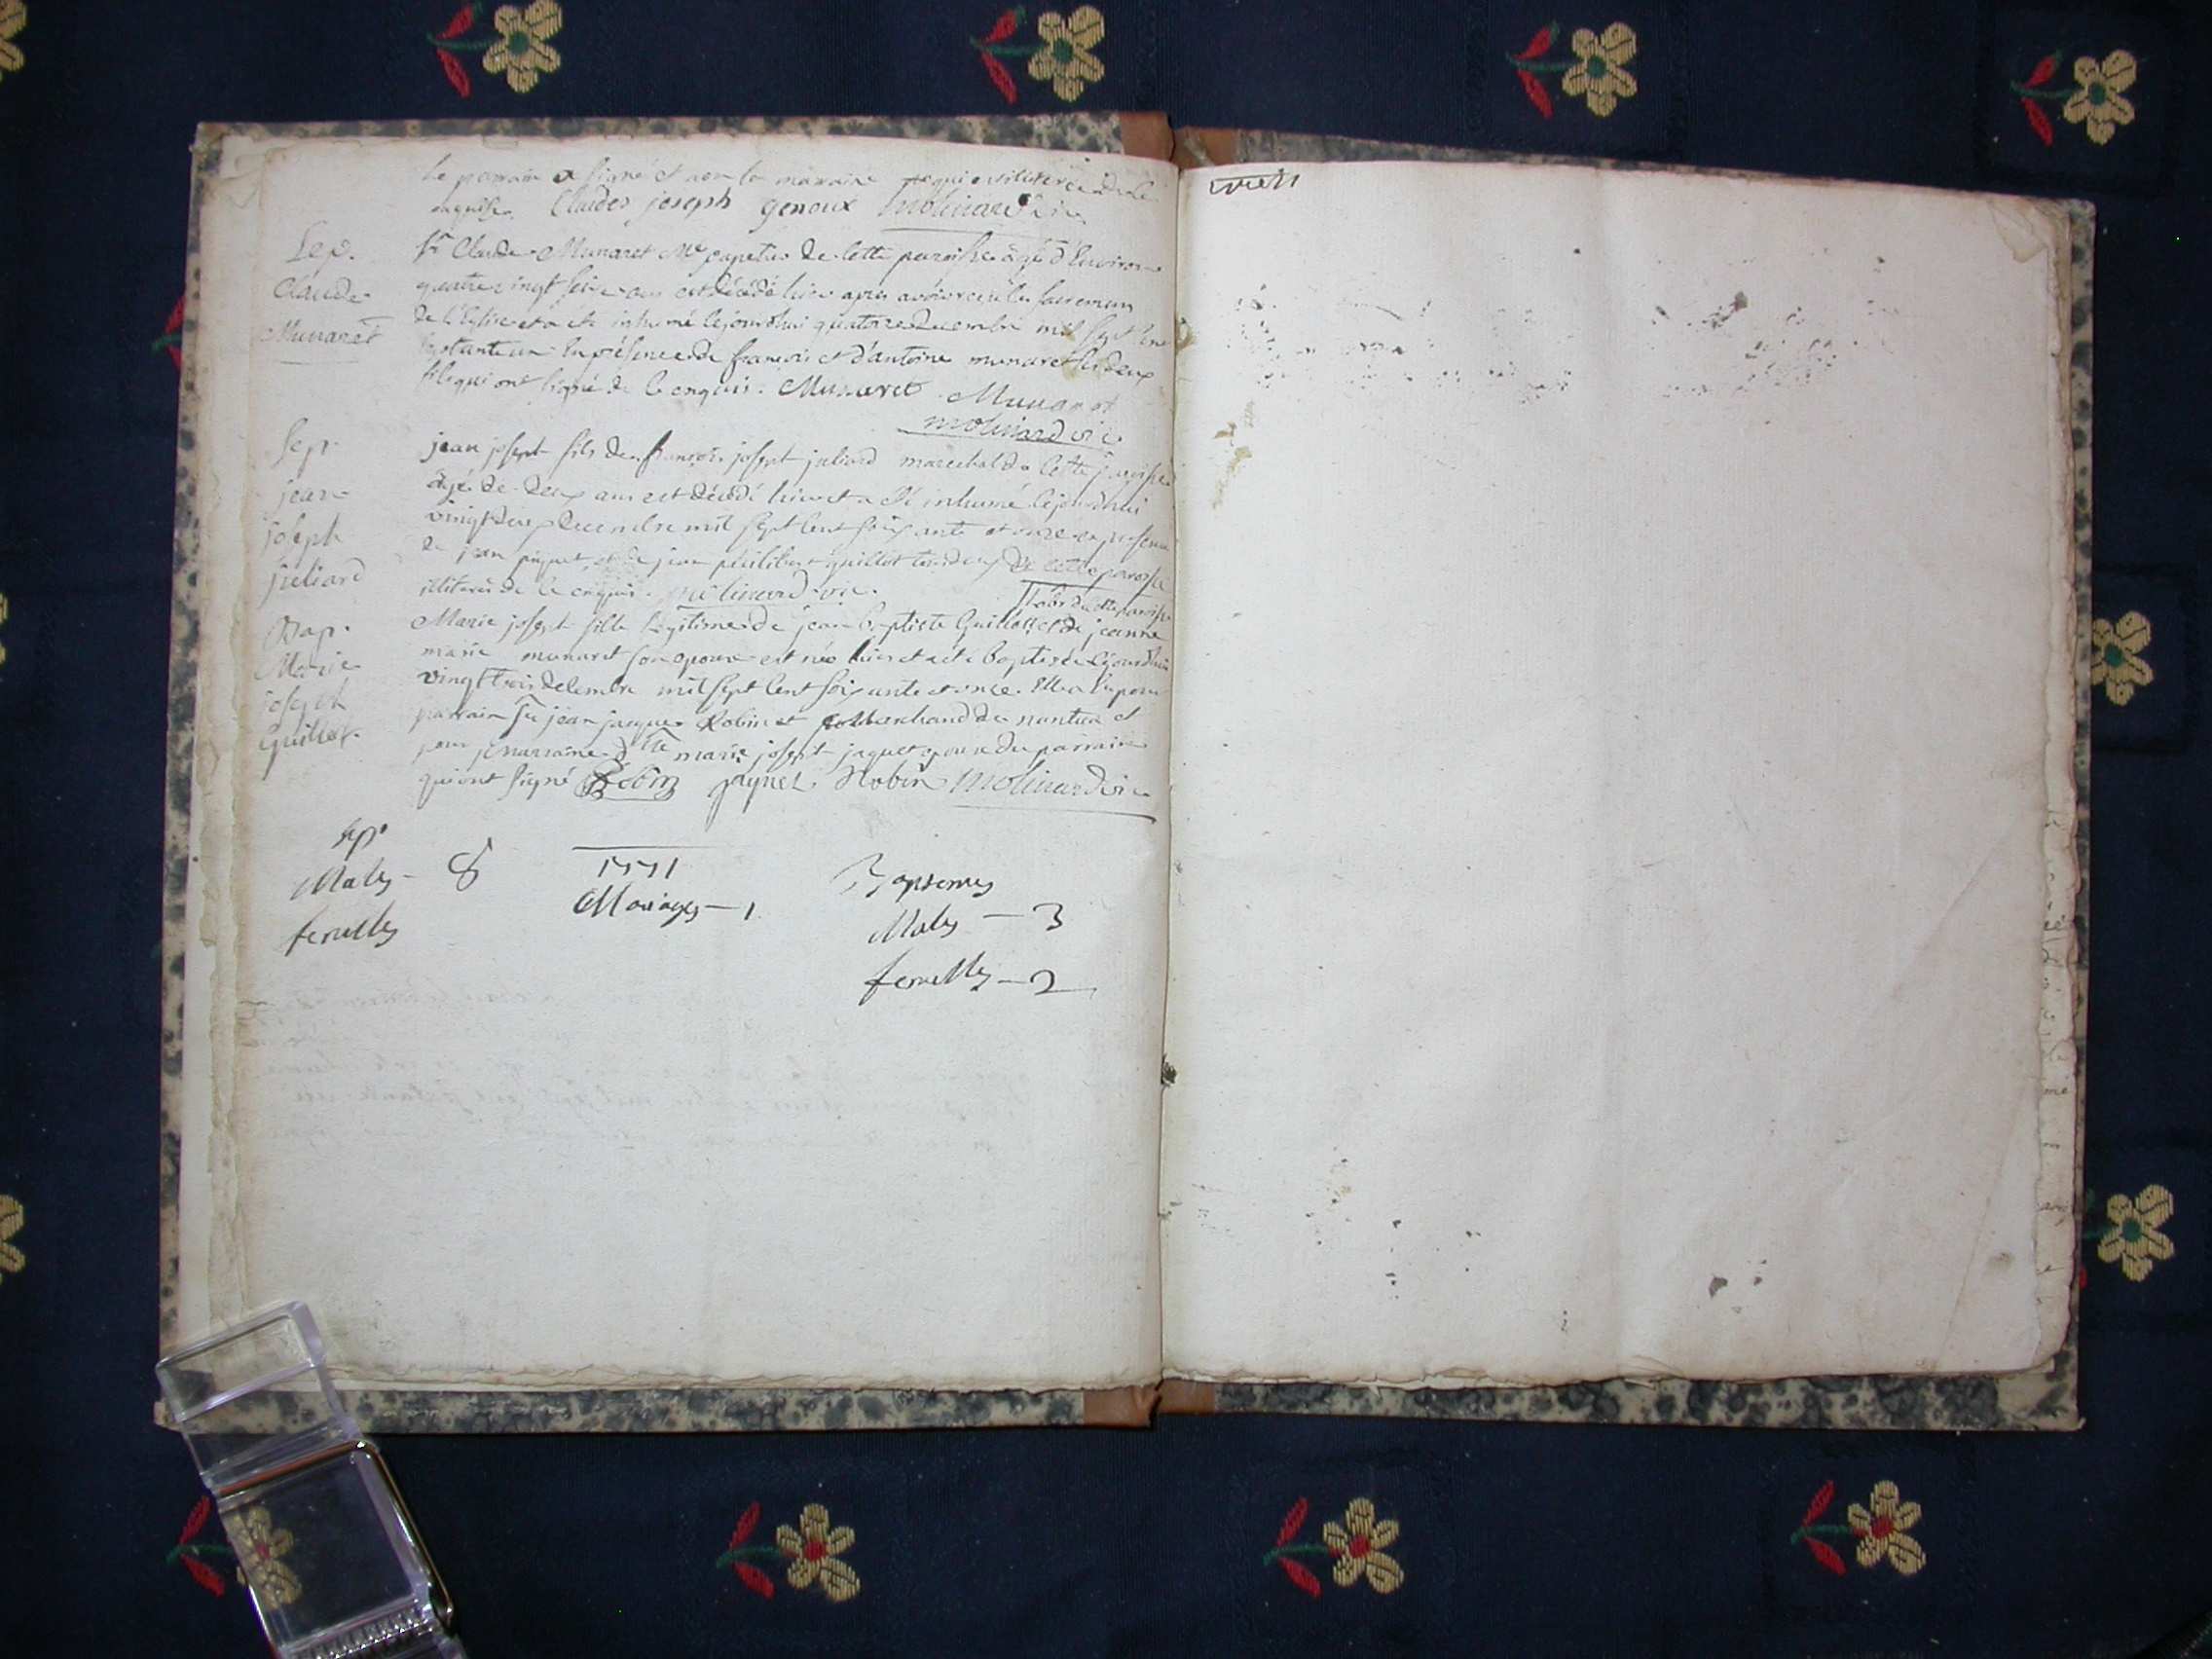 le parrain a signé et non la marraine
enquise. Claudes joseph genoux Molinard vic
Sep.
Claude
Munaret
Sr Claude Munaret Me papetier de cette paroisse âgé d'Environ
quatrevingt seize ans est décédé hier apres avoir les sacremen
de l'Eglise et a ete inhumé cejourdhui quatorze decembre mil sept cent
en présence de francois et d'antoine munaret ses deux
fils qui ont signé de ce enquis. Munaret Munaret
Molinard vic
Sep.
jean
joseph
juliard
jean joseph fils de francois joseph juliard marechal de cette paroisse
âgé de deux ans est décédé hier et a été inhumé cejourdhui
vingt deux decembre mil sept cent soixante et onze en presence
de jean piquet, et de jean philibert guillot tous deux de cette paroisse
illiterés de ce enquis. molinard vic.
Bap.
Marie
joseph
Guillot.
de cette paroisse
Marie joseph fille legitime de jean baptiste Guillot et de jeanne
marie munaret son epouse est née hier et a été baptisée cejourdhui
vingt trois decembre mil sept cent soixante et onze. Elle a eu pour
parrain Sr jean jacques Robin et Marchand de nantua et
pour marraine dlle marie joseph jaquet epouse du parrain
qui ont signé Robin jaquet Robin Molinard vic
Sep.
Males - 8
femelles
1771
Mariages - 1
Baptemes
Males - 3
femelles - 2